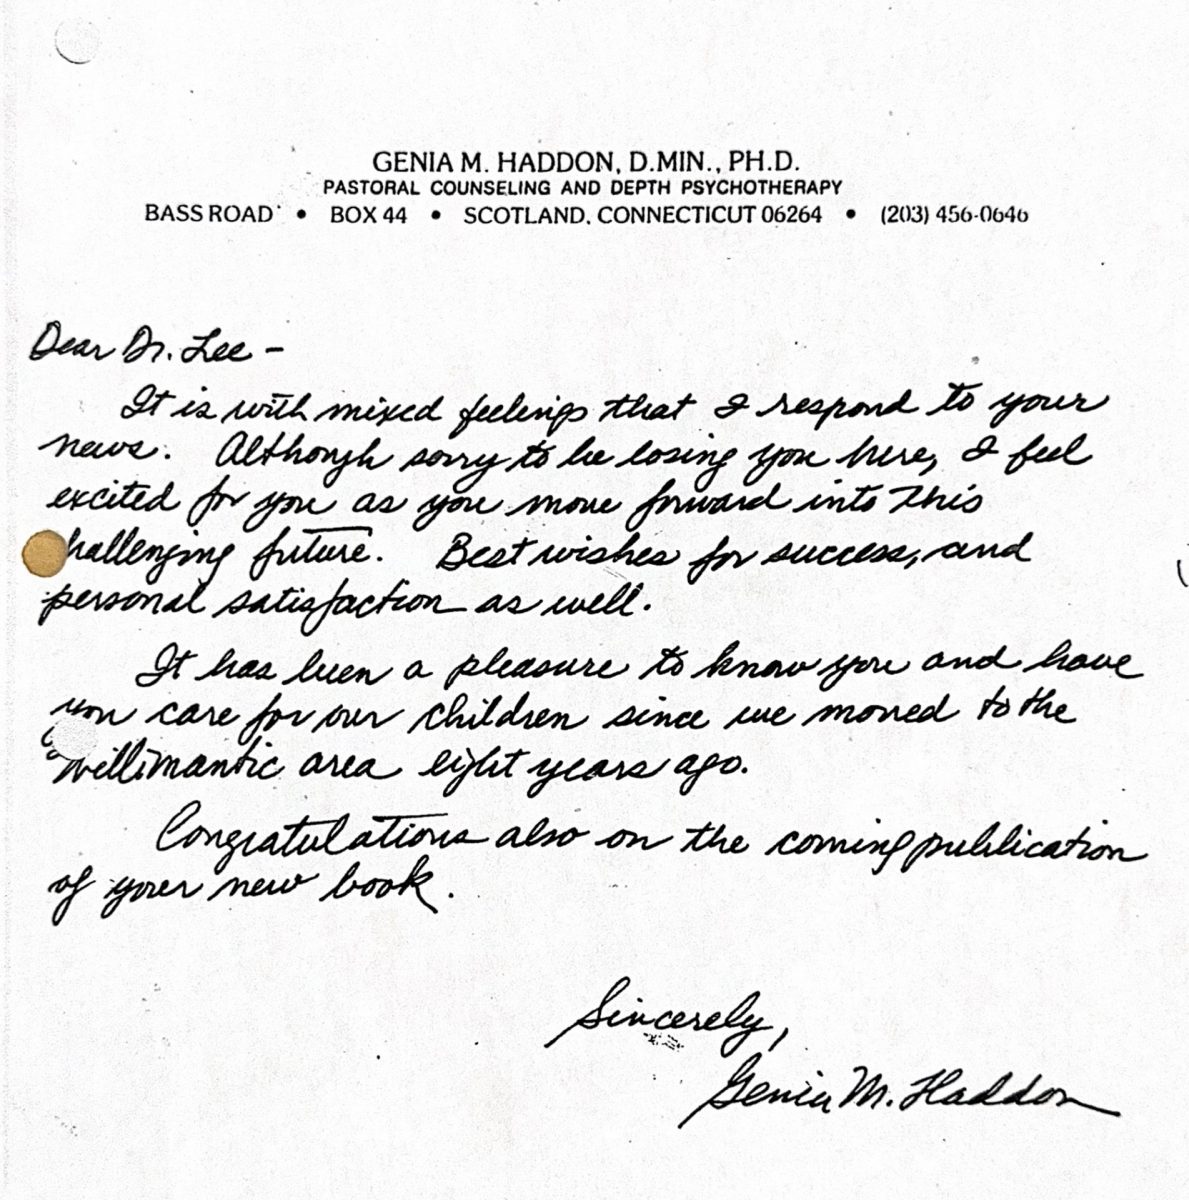 GENIA M. HADDON, D.MIN., PH.D.
PASTORAL COUNSELING AND DEPTH PSYCHOTHERAPY
BASS ROAD • BOX 44 • SCOTLAND, CONNECTICUT 06264 • (203) 456-0646
Dear Dr. Lee -
It is with mixed feelings that I respond to your
news. Although sorry to be losing you here, I feel
excited for you as you move forward into this
challenging future. Best wishes for success, and
personal satisfaction as well.
It has been a pleasure to know you and have
you care for our children since we moved to the
Willimantic area eight years ago.
Congratulations also on the coming publication
of your new book.
Sincerely,
Genia M. Haddon